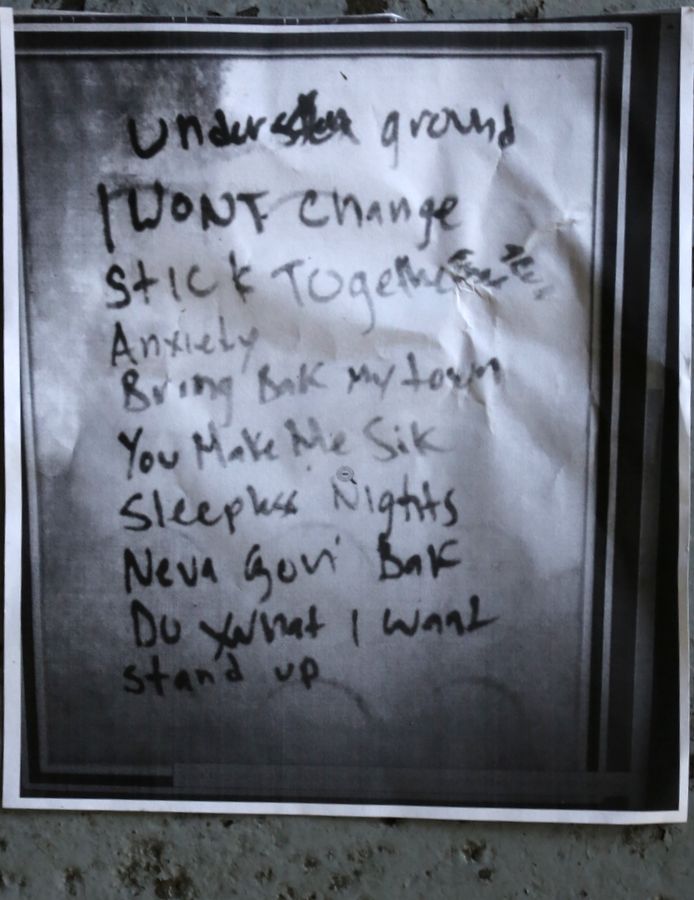 Under ground
I WONT change
Stick Together
Anxiety
Bring Bak My town
You Make Me Sik
Sleepless Nights
Neva Goin' Bak
Do What I want
stand up